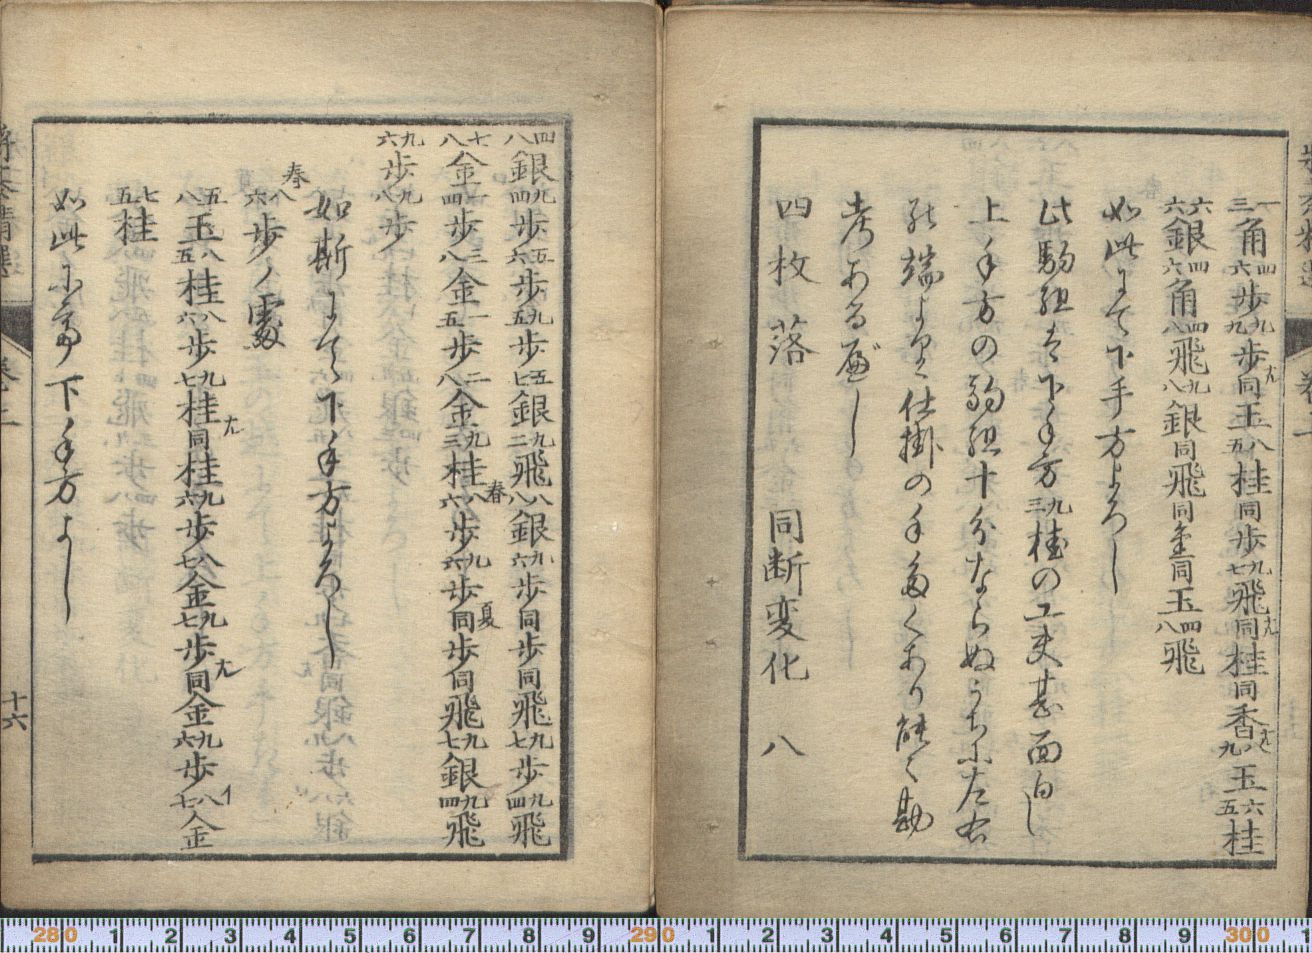 一三角四六歩九九歩同玉八五桂同歩九七飛同桂同香八九玉六五桂
六六銀四六角四八飛九八銀同飛同金同玉四八飛
如此にて下手方よろし
此駒組は下手方九三桂の工夫甚面白し
上手方の駒組十分ならぬうちに左右
の端より仕掛の手多くあり能く勘
考あるべし
四枚落 同断変化 八
四八銀九四歩五六歩九五歩五七銀九二飛八八銀九六歩同歩同飛九七歩九四飛
七八金一四歩三八金一五歩二八金九三桂八六歩九六歩同歩同飛九七銀九四飛
九六歩九八歩
春
夏
如斯にて下手方よろし
春
八六歩ノ處
五八玉八五桂八六歩九七桂同桂九六歩八七金九七歩同金九六歩八七金
七五桂
如此にて下手方よし
十六
280 1 2 3 4 5 6 7 8 9 290 1 2 3 4 5 6 7 8 9 300 1